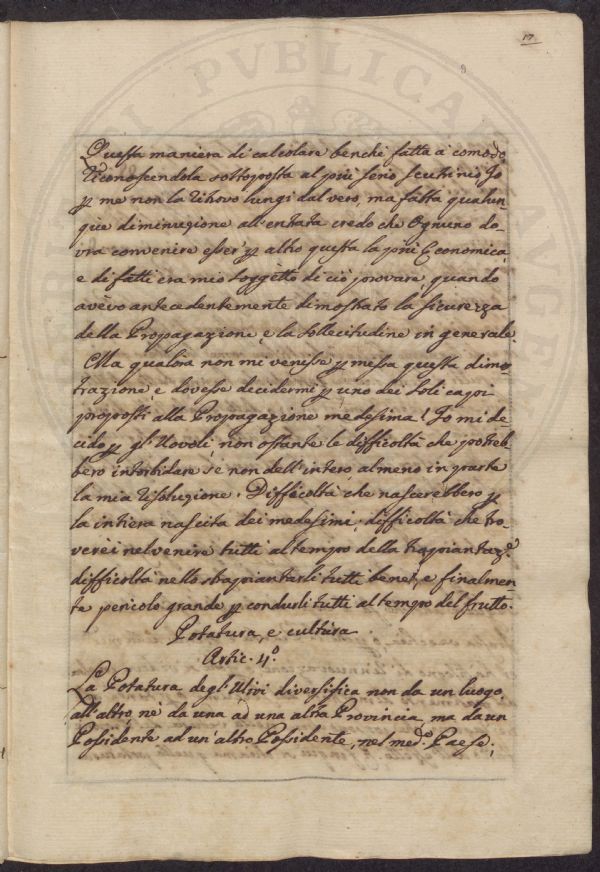 17
9
Questa maniera di calcolare benchè fatta a comodo,
riconoscendola sottoposta al più serio scutinio Io
p me non la ritrovo lungi dal vero, ma fatta qualun-
que diminuzione all'entrata credo che Ognuno do-
vrà convenire esser p altro questa la più Economica
e di fatti era mio soggetto di ciò provare, quando
avèvo antecedentemente dimostrato la sicurezza
della Propagazione, e la sollecitudine in generale.
Ma qualora non mi venisse p messa questa dimos
trazione, e dovesse decidermi p uno dei soli capi
proposti alla Propagazione medesima! Io mi de-
cido p gl'Uovoli, non ostante le difficoltà che potreb-
bero intorbidare se non dell'intero, almeno in parte
la mia risoluzione. Difficoltà che nascerebbero p
la intiera nascita dei medesimi; difficoltà che tro-
verèi nel venire tutti al tempo della trapiantaz.e
difficoltà nello strapiantarli tutti bene, e finalmen
te pericolo grande p condurli tutti al tempo del frutto.
Potatura, e cultùra
Artic. 4.o
La Potatura degl'Ulivi diversifica non da un luogo,
all'altro, nè da una ad una altra Provincia, ma da un
Possidente ad un'altro Possidente, nel med.o Paese;